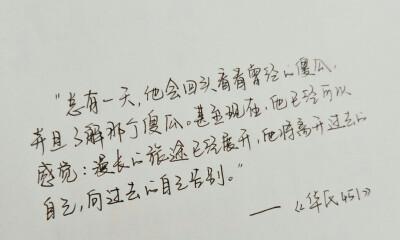 “总有一天，他会回头看看曾经的傻瓜，
并且了解那个傻瓜。甚至现在，他已经可以
感觉：漫长的旅途已经展开，他将离开过去的
自己，向过去的自己告别。”
——《华氏451》